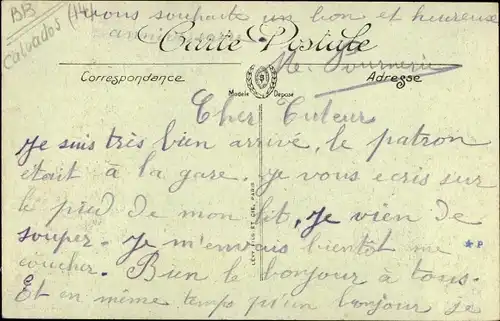 BB
Calvados (14)
vous souhaite un bon et heureuse
anniversaire
Carte Postale
Correspondance
Adresse
Modèle Déposé
Cher Tuteur
Je suis très bien arrivé, le patron
etait à la gare. je vous ecris sur
le pied de mon lit, Je vien de
souper. Je m'envais bientot me
coucher. Bien le bonjour à tous.
Et en même temps qu'un bonjour je
LÉVY FILS ET CIE, PARIS
★P